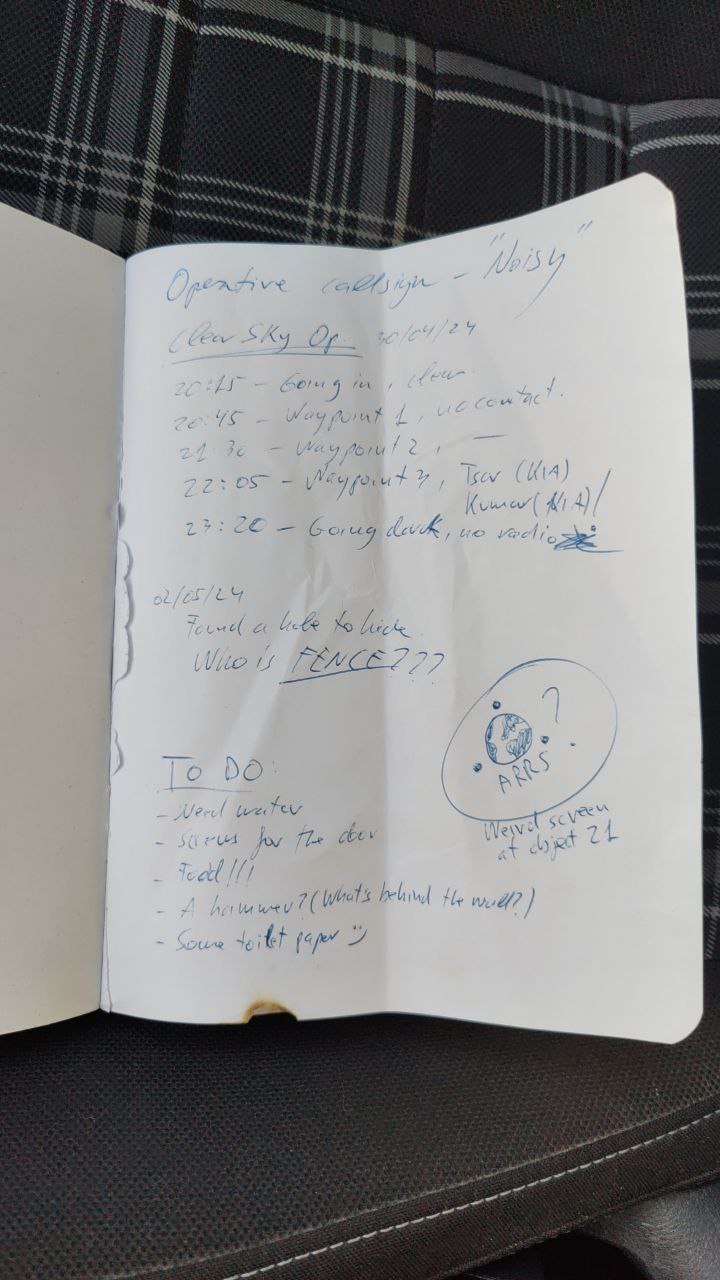 Operative callsign - "Noisy"
Clear Sky Op. 30/04/24
20:15 - Going in, clear.
20:45 - Waypoint 1, no contact.
21:30 - Waypoint 2, —
22:05 - Waypoint 3, Tsar (KIA)
Kumar (KIA)/
23:20 - Going dark, no radio
02/05/24
Found a hole to hide
Who is FENCE???
?
ARRS
Weird screen
at object 21
TO DO:
- Need water
- Screws for the door
- Food!!!
- A hammer? (What's behind the wall?)
- Some toilet paper :)